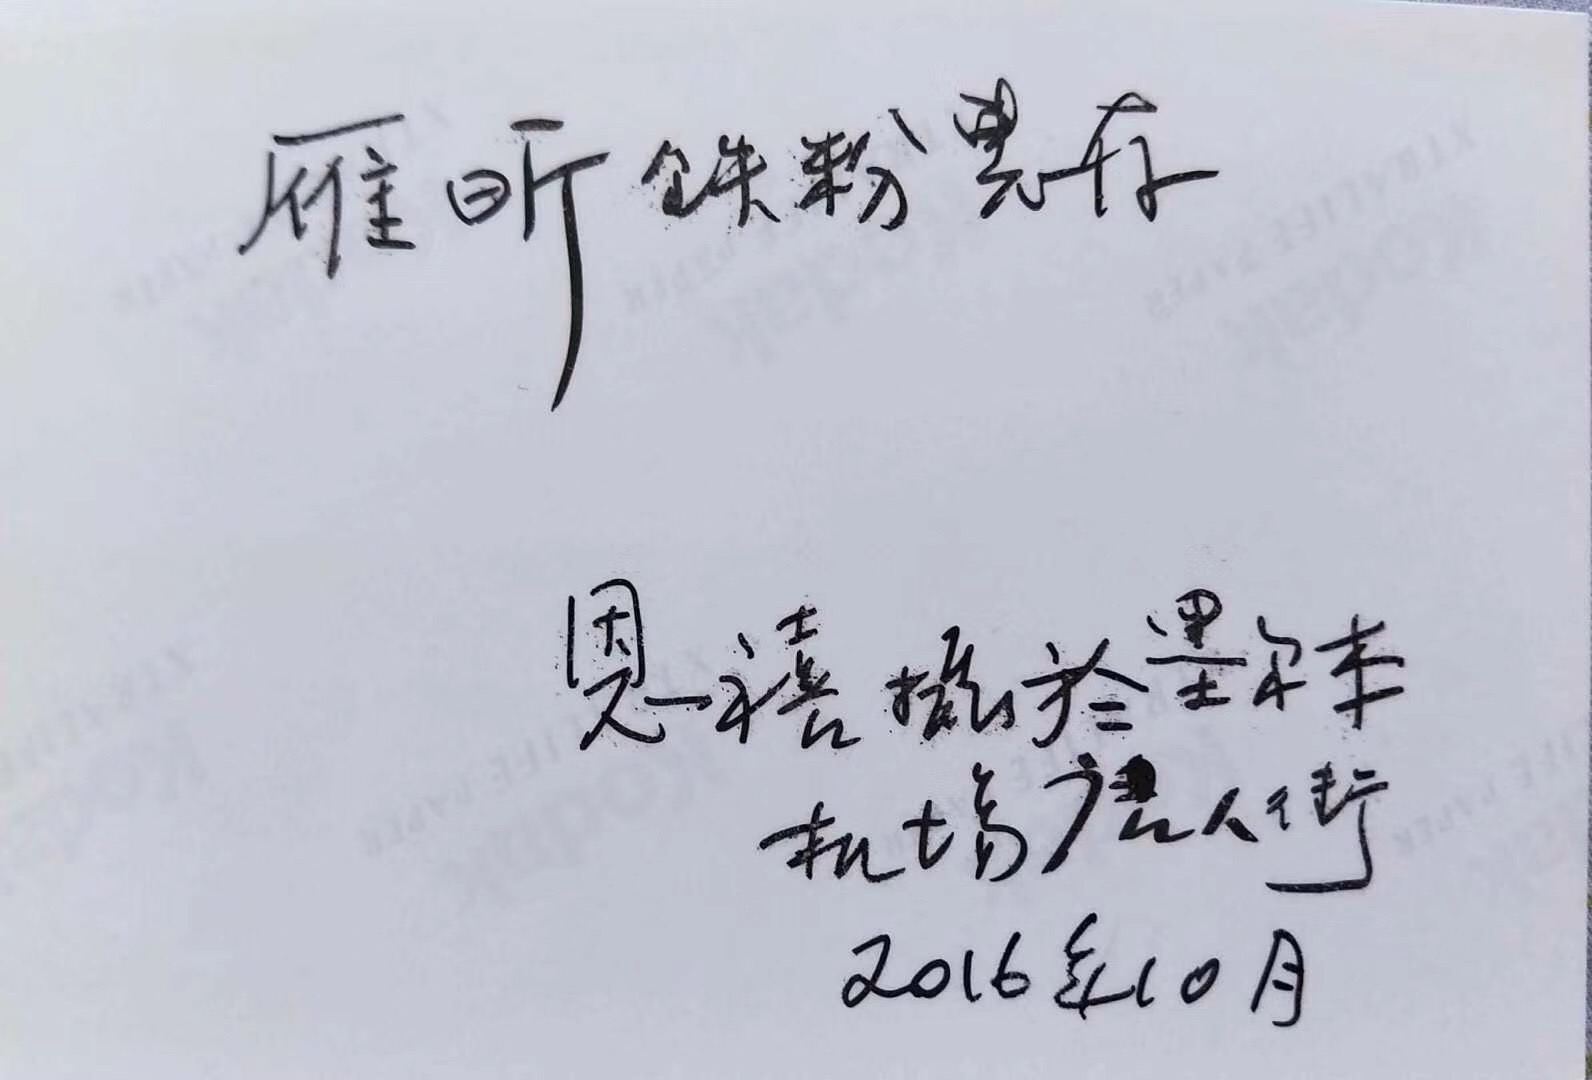 雁昕铁粉惠存
恩禧摄於墨尔本
机场唐人街
2016年10月